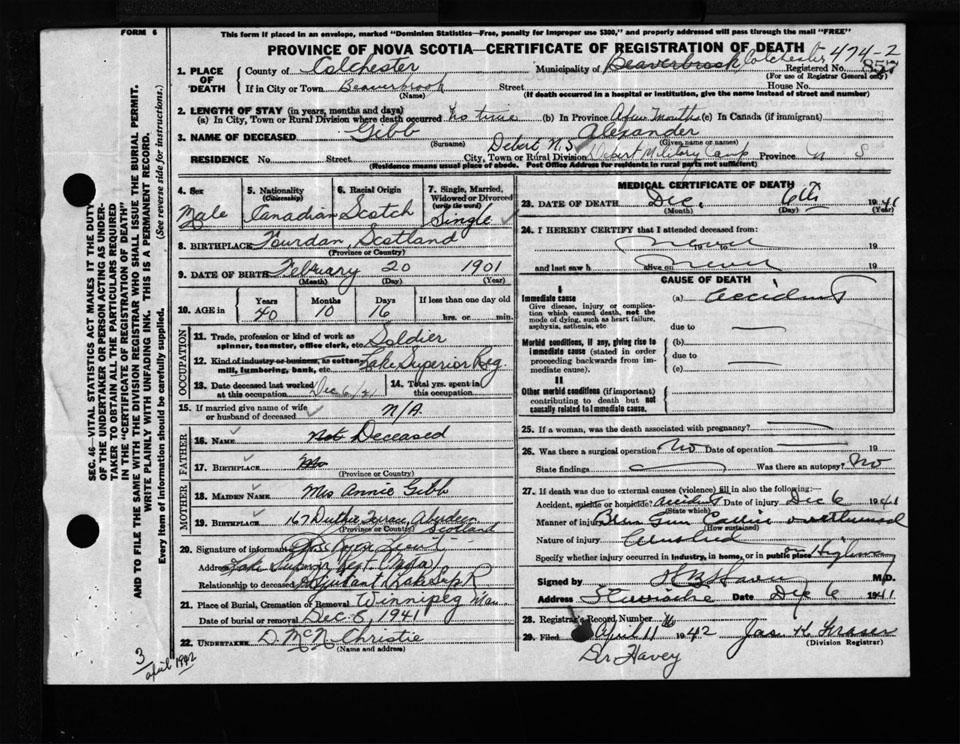 FORM 6
This form if placed in an envelope, marked "Dominion Statistics—Free, penalty for improper use $300," and properly addressed will pass through the mail "FREE"
PROVINCE OF NOVA SCOTIA—CERTIFICATE OF REGISTRATION OF DEATH
474-2
1. PLACE OF DEATH
County of Colchester
Municipality of Beaverbrook, Colchester
Registered No. 857
(For use of Registrar General only)
If in City or Town Beaverbrook
(Name)
Street
House No.
(If death occurred in a hospital or institution, give the name instead of street and number)
2. LENGTH OF STAY (in years, months and days)
(a) In City, Town or Rural Division where death occurred No time
(b) In Province A few months
(c) In Canada (if immigrant)
3. NAME OF DECEASED Gibb Alexander
(Surname)
(Given name or names)
Debert N.S.
RESIDENCE No. Street City, Town or Rural Division Debert Military Camp Province N S
(Residence means usual place of abode. Post Office Address for residents in rural parts not sufficient)
4. Sex
Male
5. Nationality (Citizenship)
Canadian
6. Racial Origin
Scotch
7. Single, Married, Widowed or Divorced (write the word)
Single
8. BIRTHPLACE Scotland
(Province or Country)
9. DATE OF BIRTH February 20 1901
(Month) (Day) (Year)
10. AGE in
Years 40
Months 10
Days 16
If less than one day old
hrs. or min.
OCCUPATION
11. Trade, profession or kind of work as spinner, teamster, office clerk, etc. Soldier
12. Kind of industry or business, as cotton mill, lumbering, bank, etc. Lake Superior Reg.
13. Date deceased last worked at this occupation Dec 6/41
14. Total yrs. spent in this occupation
15. If married give name of wife or husband of deceased N/A
FATHER
16. NAME Not Deceased
17. BIRTHPLACE
(Province or Country)
MOTHER
18. MAIDEN NAME Mrs Annie Gibb
19. BIRTHPLACE 167 Aberdeen Scotland
(Province or Country)
20. Signature of informant Lieut
Address Lake Superior Regt
Relationship to deceased Adjutant
21. Place of Burial, Cremation or Removal Winnipeg Man.
Date of burial or removal Dec. 8, 1941
22. UNDERTAKER D. McN. Christie
(Name and address)
MEDICAL CERTIFICATE OF DEATH
23. DATE OF DEATH Dec. 6th 1941
(Month) (Day) (Year)
24. I HEREBY CERTIFY that I attended deceased from:
never to 19
and last saw h alive on never 19
CAUSE OF DEATH
I
Immediate cause
Give disease, injury or complication which caused death, not the mode of dying, such as heart failure, asphyxia, asthenia, etc
(a) accident
due to
Morbid conditions, if any, giving rise to immediate cause (stated in order proceeding backwards from immediate cause).
(b)
due to
(c)
II
Other morbid conditions (if important) contributing to death but not causally related to immediate cause.
25. If a woman, was the death associated with pregnancy?
26. Was there a surgical operation? No Date of operation 19
State findings Was there an autopsy? No
27. If death was due to external causes (violence) fill in also the following:—
Accident, suicide or homicide? accident Date of injury Dec 6 1941
(State which)
Manner of injury Bren Gun Carrier overturned
(How sustained)
Nature of injury Crushed
Specify whether injury occurred in industry, in home, or in public place on Highway
Signed by M.D.
Address Stewiacke Date Dec 6 1941
28. Registrar's Record Number
29. Filed April 11 1942 Jas. H.
(Division Registrar)
Dr Havey
3
april 1942
SEC. 46—VITAL STATISTICS ACT MAKES IT THE DUTY OF THE UNDERTAKER OR PERSON ACTING AS UNDERTAKER TO OBTAIN ALL THE PARTICULARS REQUIRED IN THE "CERTIFICATE OF REGISTRATION OF DEATH" AND TO FILE THE SAME WITH THE DIVISION REGISTRAR WHO SHALL ISSUE THE BURIAL PERMIT.
WRITE PLAINLY WITH UNFADING INK. THIS IS A PERMANENT RECORD.
Every item of information should be carefully supplied. (See reverse side for instructions.)